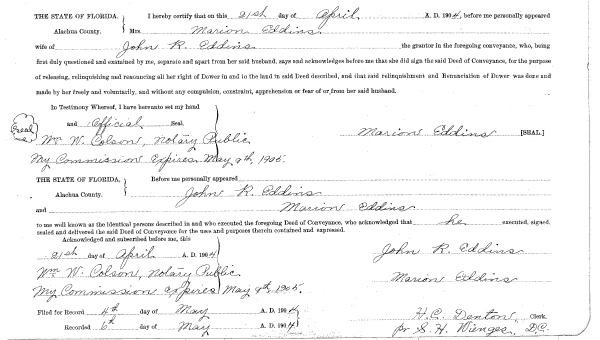 THE STATE OF FLORIDA. I hereby certify that on this 21st day of April A. D. 1904, before me personally appeared
Alachua County. Mrs. Marion Eddins
wife of John R. Eddins the grantor in the foregoing conveyance, who, being
first duly questioned and examined by me, separate and apart from her said husband, says and acknowledges before me that she did sign the said Deed of Conveyance, for the purpose
of releasing, relinquishing and renouncing all her right of Dower in and to the land in said Deed described, and that said relinquishment and Renunciation of Dower was done and
made by her freely and voluntarily, and without any compulsion, constraint, apprehension or fear of or from her said husband.
In Testimony Whereof, I have hereunto set my hand
and Official Seal.
Seal
Wm W. Colson, Notary Public. Marion Eddins [SEAL]
My Commission Expires May 9th, 1905.
THE STATE OF FLORIDA. Before me personally appeared
Alachua County. John R. Eddins
and Marion Eddins
to me well known as the identical persons described in and who executed the foregoing Deed of Conveyance, who acknowledged that he executed, signed,
sealed and delivered the said Deed of Conveyance for the uses and purposes therein contained and expressed.
Acknowledged and subscribed before me, this
21st day of April A. D. 1904 John R. Eddins
Wm W. Colson, Notary Public.
Marion Eddins
My Commission expires May 9th, 1905.
Filed for Record 4th day of May A. D. 1904 H. C. Denton, Clerk.
Recorded 6th day of May A. D. 1904 pr S. H. Wienges, D.C.